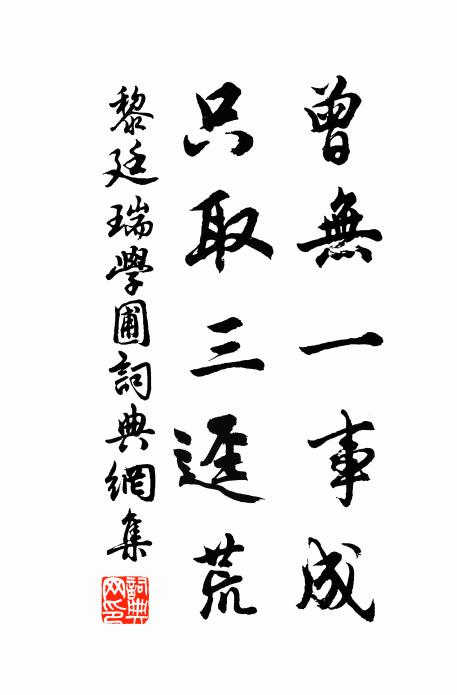 曾無一事成
只取三逕荒
黎廷瑞學圃詞典網集
詞典网印